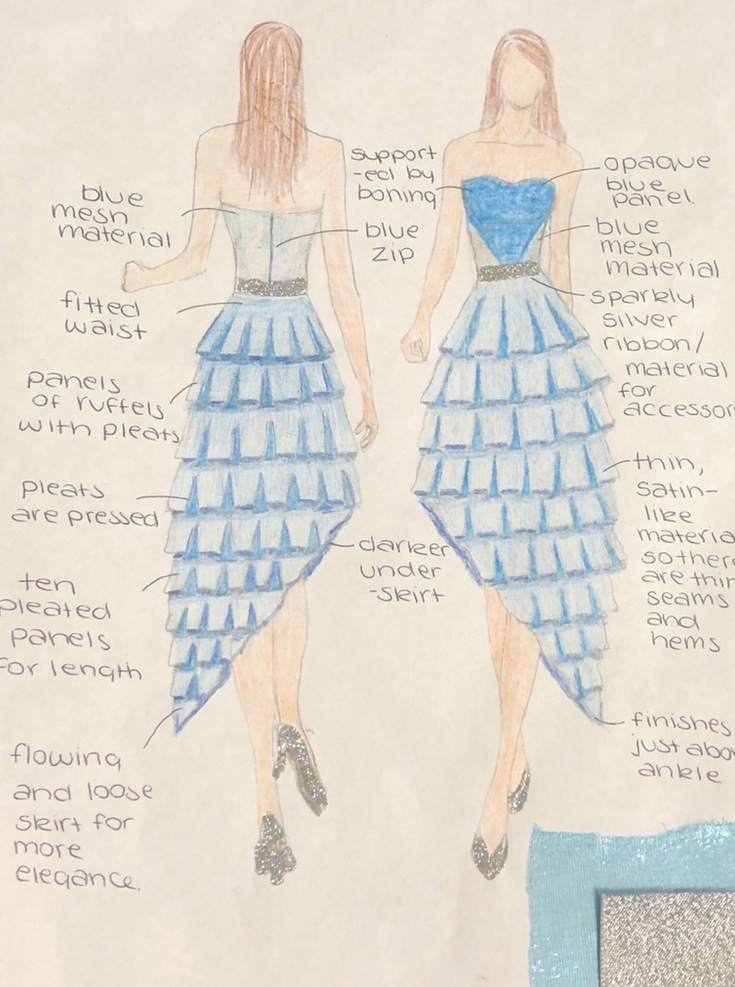 blue
mesh
material
fitted
waist
panels
of ruffels
with pleats
pleats
are pressed
ten
pleated
panels
for length
flowing
and loose
skirt for
more
elegance.
support
-ed by
boning
blue
zip
darker
under
-skirt
opaque
blue
panel.
blue
mesh
material
sparkly
silver
ribbon/
material
for
accessor
thin,
satin-
like
materia
so ther
are thin
seams
and
hems
finishes
just abo
ankle